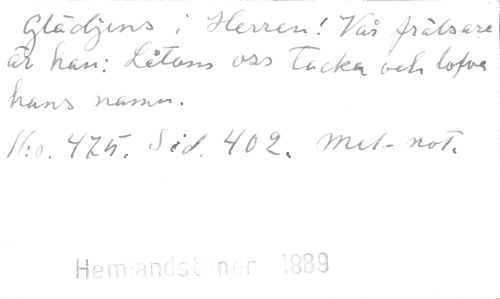 Glädjens i Herren! Vår frälsare
är han: Låtom oss tacka och lofva
hans namn.
N:o. 475. Sid. 402. Met- not.
Hemlandstoner 1889